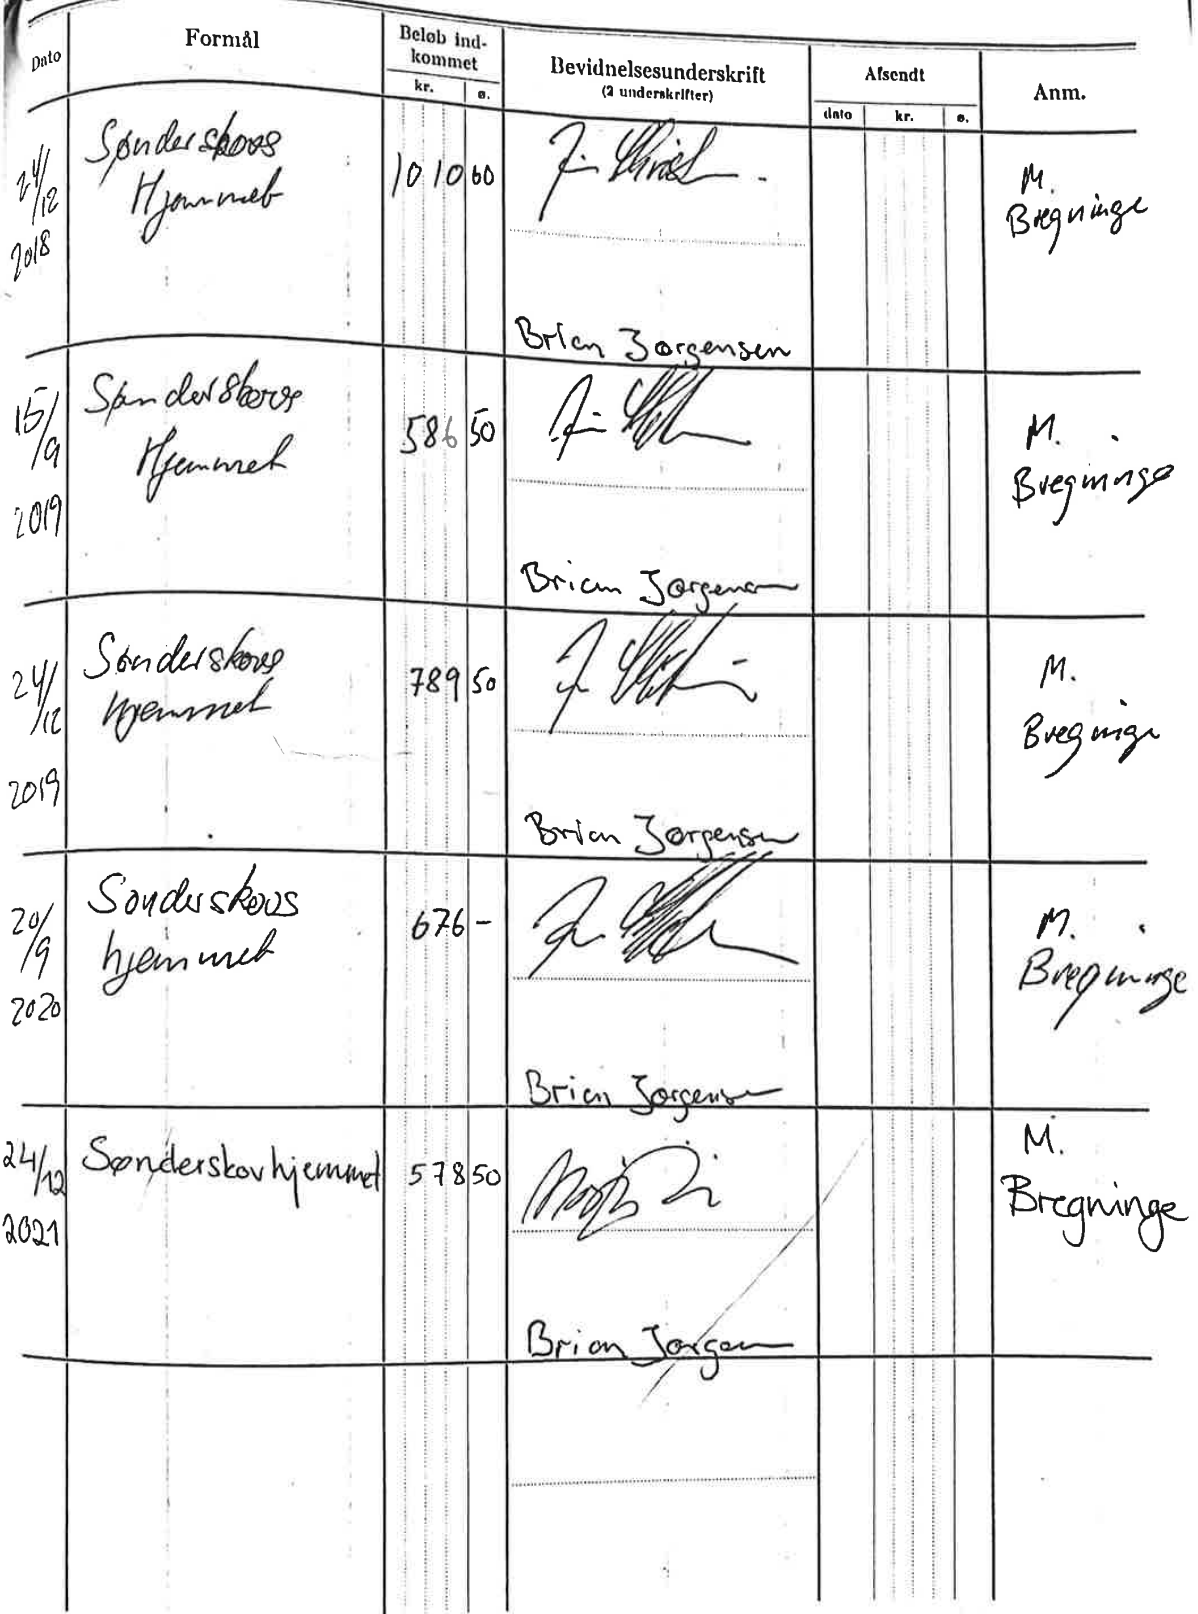 Dato
Formål
Beløb ind-
kommet
kr.
ø.
Bevidnelsesunderskrift
(2 underskrifter)
Afsendt
dato
kr.
ø.
Anm.
24/12
2018
Sønderskovs
Hjemmet
1010 60
Brian Jørgensen
M.
Bregninge
15/9
2019
Sønderskovs
Hjemmet
586 50
Brian Jørgensen
M.
Bregninge
24/12
2019
Sønderskovs
hjemmet
789 50
Brian Jørgensen
M.
Bregninge
20/9
2020
Sønderskovs
hjemmet
676 -
Brian Jørgensen
M.
Bregninge
24/12
2021
Sønderskovhjemmet
578 50
Brian Jørgensen
M.
Bregninge